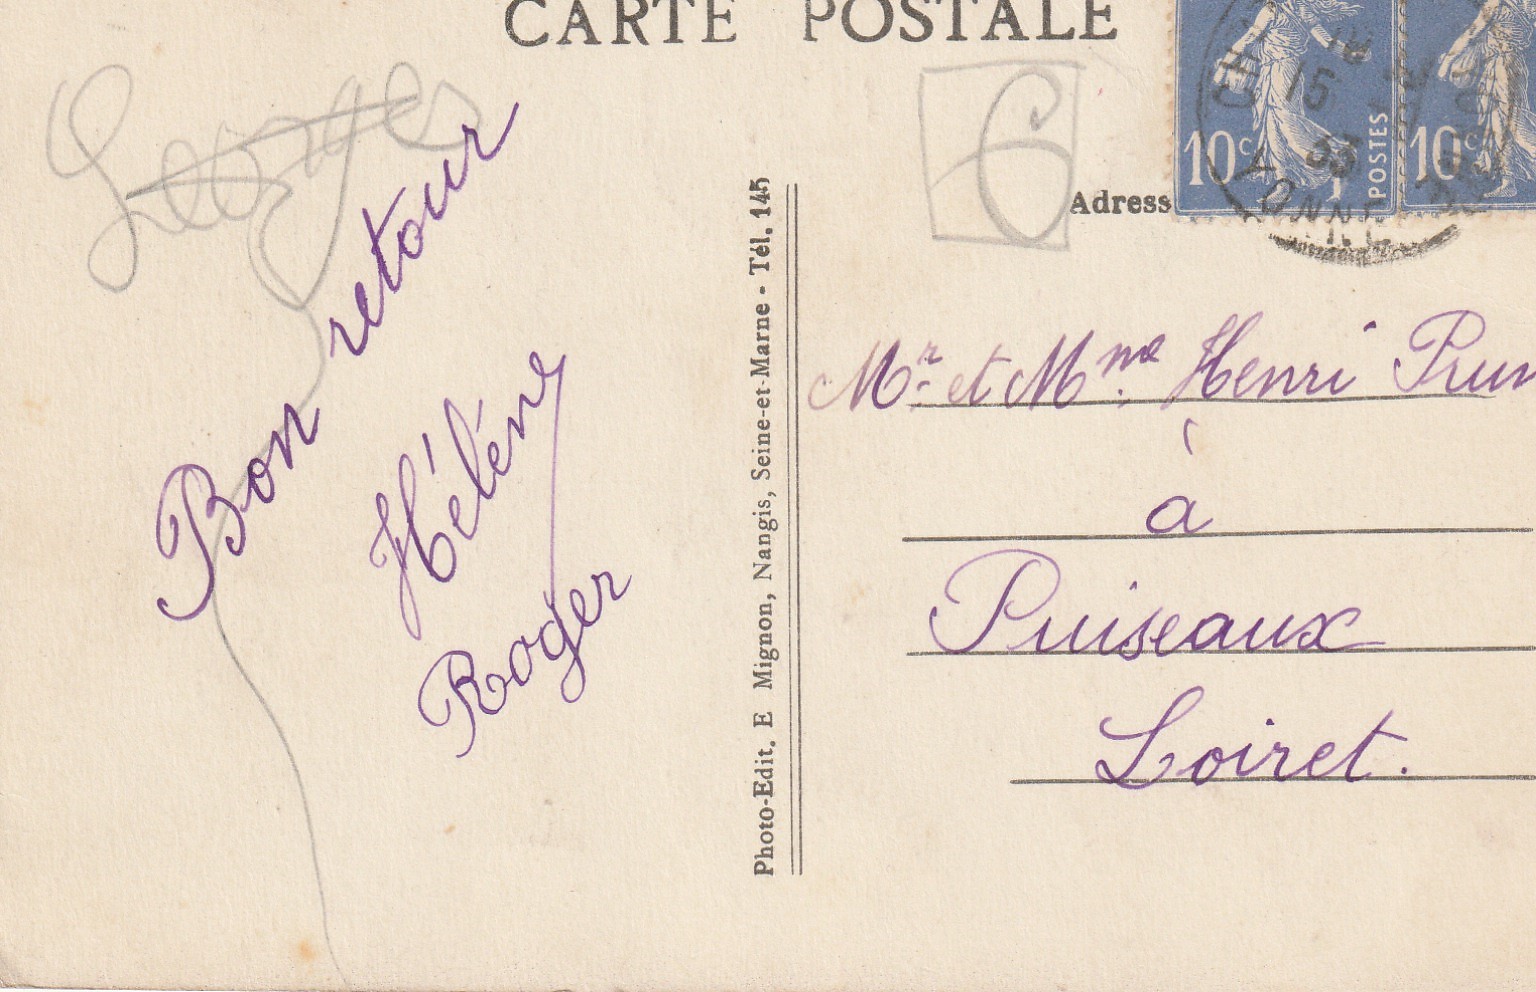 CARTE POSTALE
Bon retour
Hélène
Roger
6
Photo-Edit. E Mignon, Nangis, Seine-et-Marne - Tél. 145
10c POSTES 10c
15
33
YONNE
Adress
Mr. et Mme. Henri Prun
à
Puiseaux
Loiret.